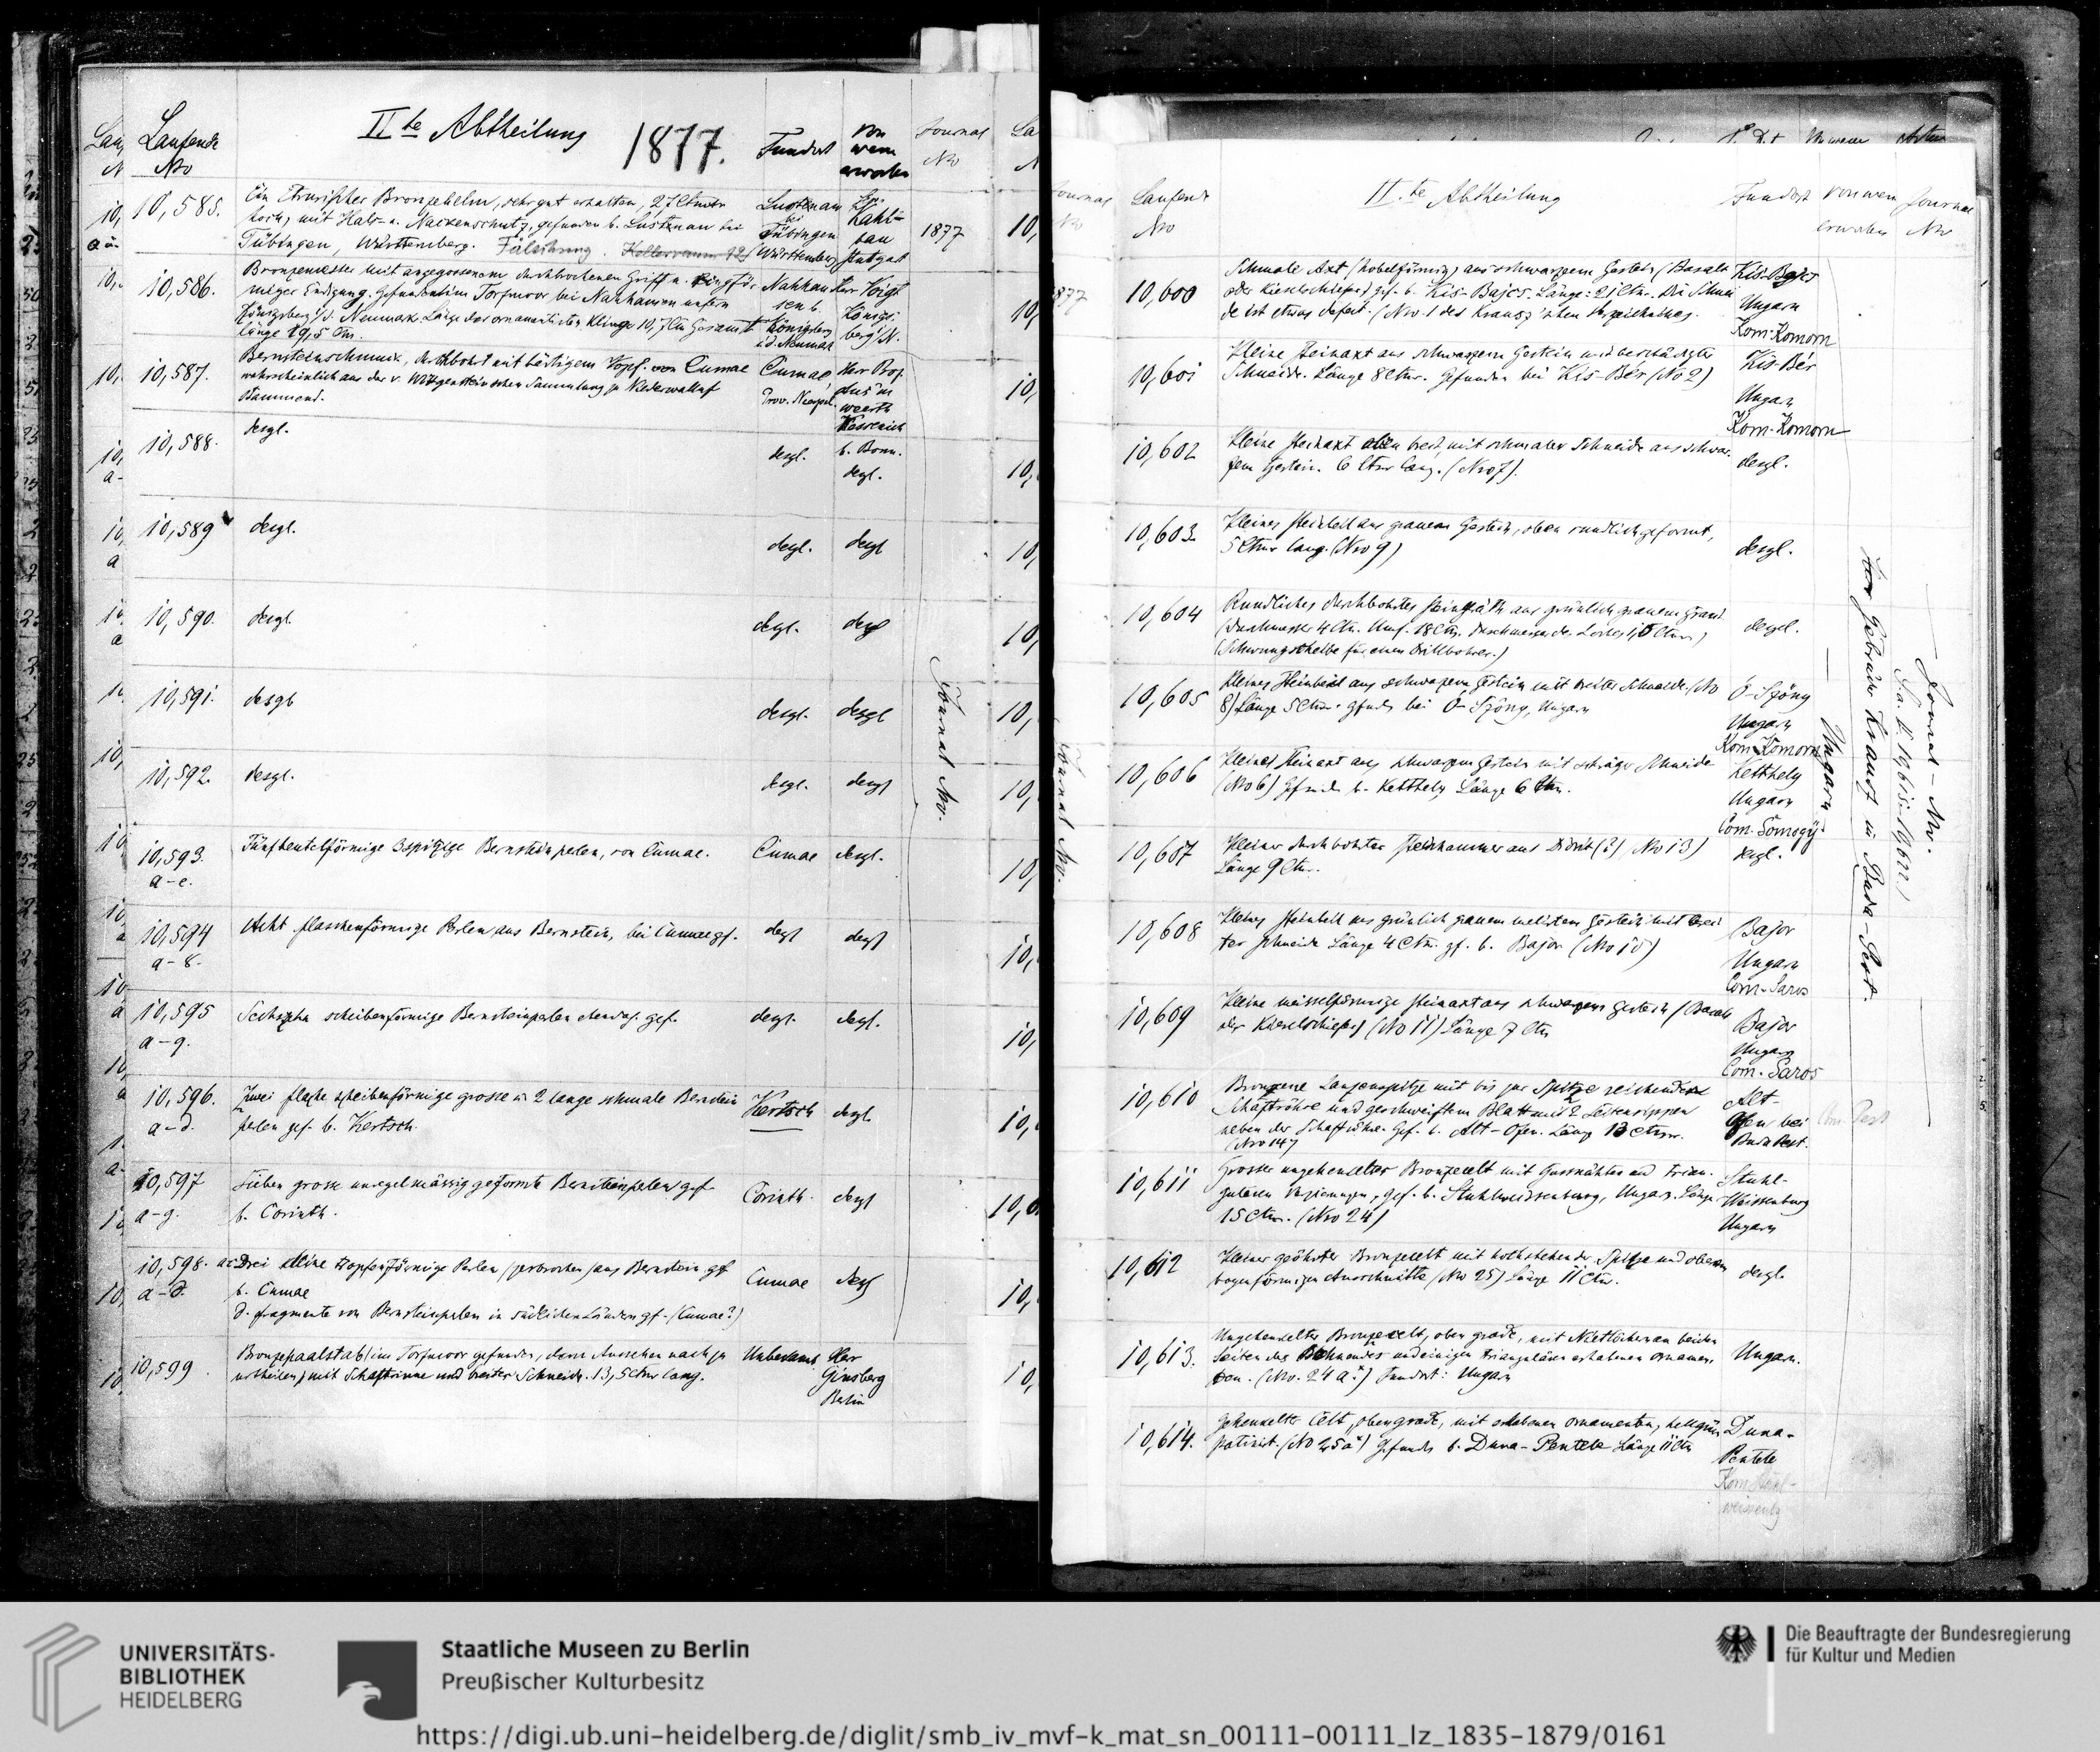 IIte Abtheilung 1877.
Laufende No
Fundort
von wem erworben
Journal No
10,585. Ein Etrurischer Bronzehelm, sehr gut erhalten, 27 Ctmtr
hoch, mit Hals- u. Nackenschutz, gefunden b. Lustnau bei
Tübingen, Württemberg. Fälschung.
Lustnau bei Tübingen Württemberg
Stutgart
1877
10,586. Bronzemesser mit angegossenem durchbrochenen Griff u. ringför-
miger Endigung. Gefunden im Torfmoor bei Nahhausen unfern
Königsberg i/d. Neumark. Länge der ornamentirten Klinge 10,7 Cm Gesammt
länge 19,5 Cm.
Nahhausen b. Königsberg i.d. Neumark
Herr Voigt Königsberg i/N.
10,587. Bernsteinschmuck, durchbohrt mit bärtigem Kopf. von Cumae
wahrscheinlich aus der v. Wittgensteinschen Sammlung zu Niederwalluf
stammend.
Cumae Prov. Neapel.
Herr Prof. aus'm weerth Kessenich b. Bonn.
10,588. desgl. desgl. desgl.
10,589 desgl. desgl. desgl
10,590. desgl. desgl. desgl
10,591. desgl desgl. desgl
10,592. desgl. desgl. desgl
Journal No.
10,593. a-e. Fünf beutelförmige 3spitzige Bernsteinperlen, von Cumae. Cumae desgl.
10,594 a-8. Acht flaschenförmige Perlen aus Bernstein, bei Cumae gf. desgl desgl
10,595 a-q. Sechszehn scheibenförmige Bernsteinperlen ebendas. gef. desgl. desgl.
10,596. a-d. Zwei flache scheibenförmige grosse u. 2 lange schmale Bernstein
perlen gef. b. Kertsch. Kertsch desgl.
10,597 a-g. Sieben grosse unregelmässig geformte Bernsteinperlen gef
b. Corinth. Corinth. desgl
10,598. a-d. Drei kleine tropfenförmige Perlen (zerbrochen) aus Bernstein gf
b. Cumae Cumae desgl
d. fragmente von Bernsteinperlen in südlichen Ländern gf. (Cumae?)
10,599 Bronzepaalstab (im Torfmoor gefunden, dem Aussehen nach zu
urtheilen) mit Schaftrinne und breiter Schneide. 13,5 Ctmr lang.
Unbekannt Herr Ginsberg Berlin
Laufende No
IIte Abtheilung
Fundort
von wem erworben
Journal No
10,600 Schmale Axt (hobelförmig) aus schwarzem Gestein (Basalt
oder Kieselschiefer) gef. b. Kis-Bajcs. Länge: 21 Ctm. Die Schnei
de ist etwas defect. (Nro. 1 des Krausz'schen Verzeichnisses.
Kis-Bajcs Ungarn Kom. Komorn
10,601 Kleine Steinaxt aus schwarzem Gestein mit beschädigter
Schneide. Länge 8 Ctmr. Gefunden bei Kis-Bér (No 2)
Kis-Bér Ungarn Kom. Komorn
10,602 Kleine Steinaxt oben breit, mit schmaler Schneide aus schwar-
zem Gestein. 6 Ctmr lang. (Nro 7). desgl.
10,603. Kleines Steinbeil aus grauem Gestein, oben rundlich geformt,
5 Ctmr lang. (Nro 9) desgl.
10,604 Rundliches durchbohrtes Steingeräth aus grünlich grauem Granit
(Durchmesser 4 Ctm. Umf. 18 Ctm. Durchmesser des Loches 1,5 Ctmr)
(Schwungscheibe für einen Drillbohrer.) desgl.
10,605 Kleines Steinbeil aus schwarzem Gestein mit breiter Schneide. (No
8) Länge 5 Ctmr. Gfunden bei Ó-Szöny, Ungarn
Ó-Szöny Ungarn Kom. Komorn
10,606 Kleine Steinaxt aus schwarzem Gestein mit schräger Schneide
(Nro 6) Gefunden b. Ketthely Länge 6 Ctm.
Ketthely Ungarn Com. Somogy
10,607 Kleiner durchbohrter Steinhammer aus Diorit (?) (No 13)
Länge 9 Ctm. desgl.
10,608 Kleines Steinbeil aus grünlich grauem melirtem Gestein mit brei
ter Schneide Länge 4 Ctm. gf. b. Bajor (No 10)
Bajor Ungarn Com. Saros
10,609 Kleine meisselförmige Steinaxt aus schwarzem Gestein (Basalt
oder Kieselschiefer) (No 11) Länge 7 Ctm
Bajor Ungarn Com. Saros
10,610 Bronzene Lanzenspitze mit bis zur Spitze reichender
Schaftröhre und geschweiftem Blatt mit 2 Seitenrippen
neben der Schaftröhre. Gef. b. Alt-Ofen. Länge 13 Ctmr.
(Nro 14)
Alt-Ofen bei Buda Pest. Com. Pest
10,611 Grosser ungehenkelter Bronzecelt mit Gussnähten und trian-
gulären Verzierungen, gef. b. Stuhlweissenburg, Ungarn. Länge
15 Ctm. (Nro 24)
Stuhl-Weissenburg Ungarn
10,612 Kleiner geöhrter Bronzecelt mit hochstehender Spitze und oberem
bogenförmigen Ausschnitte (No 25) Länge 11 Ctm. desgl.
10,613. Ungehenkelter Bronzecelt, oben grade, mit Nietlöchern an beiden
Seiten des und einigen triangulären erhabenen Ornamen-
ten. (No. 24 a*) Fundort: Ungarn Ungarn.
10,614. Gehenkelter Celt, oben grade, mit erhabenen Ornamenten, hellgrün
patinirt. (No 25a*) Gefunden b. Duna-Pentele Länge 11 Ctm
Duna-Pentele Kom. Stuhlweissenbg
Ungarn
Herr Gebrüder Krausz in Buda-Pest.
Journal-No.
UNIVERSITÄTS-
BIBLIOTHEK
HEIDELBERG
Staatliche Museen zu Berlin
Preußischer Kulturbesitz
Die Beauftragte der Bundesregierung
für Kultur und Medien
https://digi.ub.uni-heidelberg.de/diglit/smb_iv_mvf-k_mat_sn_00111-00111_lz_1835-1879/0161